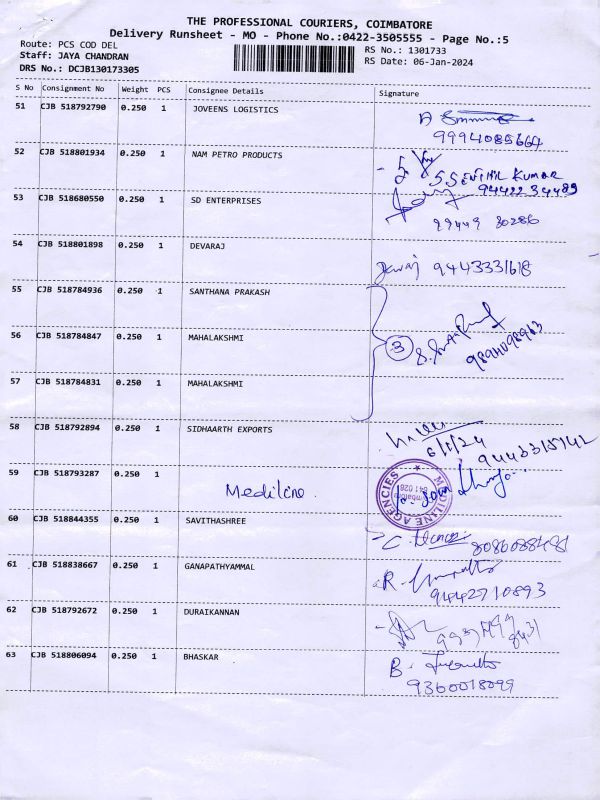 THE PROFESSIONAL COURIERS, COIMBATORE
Delivery Runsheet - MO - Phone No.:0422-3505555 - Page No.:5
Route: PCS COD DEL
RS No.: 1301733
Staff: JAYA CHANDRAN
RS Date: 06-Jan-2024
DRS No.: DCJB130173305
S No Consignment No Weight PCS Consignee Details Signature
51 CJB 518792790 0.250 1 JOVEENS LOGISTICS
9994085664
52 CJB 518801934 0.250 1 NAM PETRO PRODUCTS
SENTHIL KUMAR
9442234489
53 CJB 518680550 0.250 1 SD ENTERPRISES
99449 30286
54 CJB 518801898 0.250 1 DEVARAJ
9443331618
55 CJB 518784936 0.250 1 SANTHANA PRAKASH
56 CJB 518784847 0.250 1 MAHALAKSHMI
3
9894098963
57 CJB 518784831 0.250 1 MAHALAKSHMI
58 CJB 518792894 0.250 1 SIDHAARTH EXPORTS
6/1/24
59 CJB 518793287 0.250 1 Mediline
MEDILINE AGENCIES
60 CJB 518844355 0.250 1 SAVITHASHREE
8086088481
61 CJB 518838667 0.250 1 GANAPATHYAMMAL
R.
9442710893
62 CJB 518792672 0.250 1 DURAIKANNAN
63 CJB 518806094 0.250 1 BHASKAR
B.
9360018099